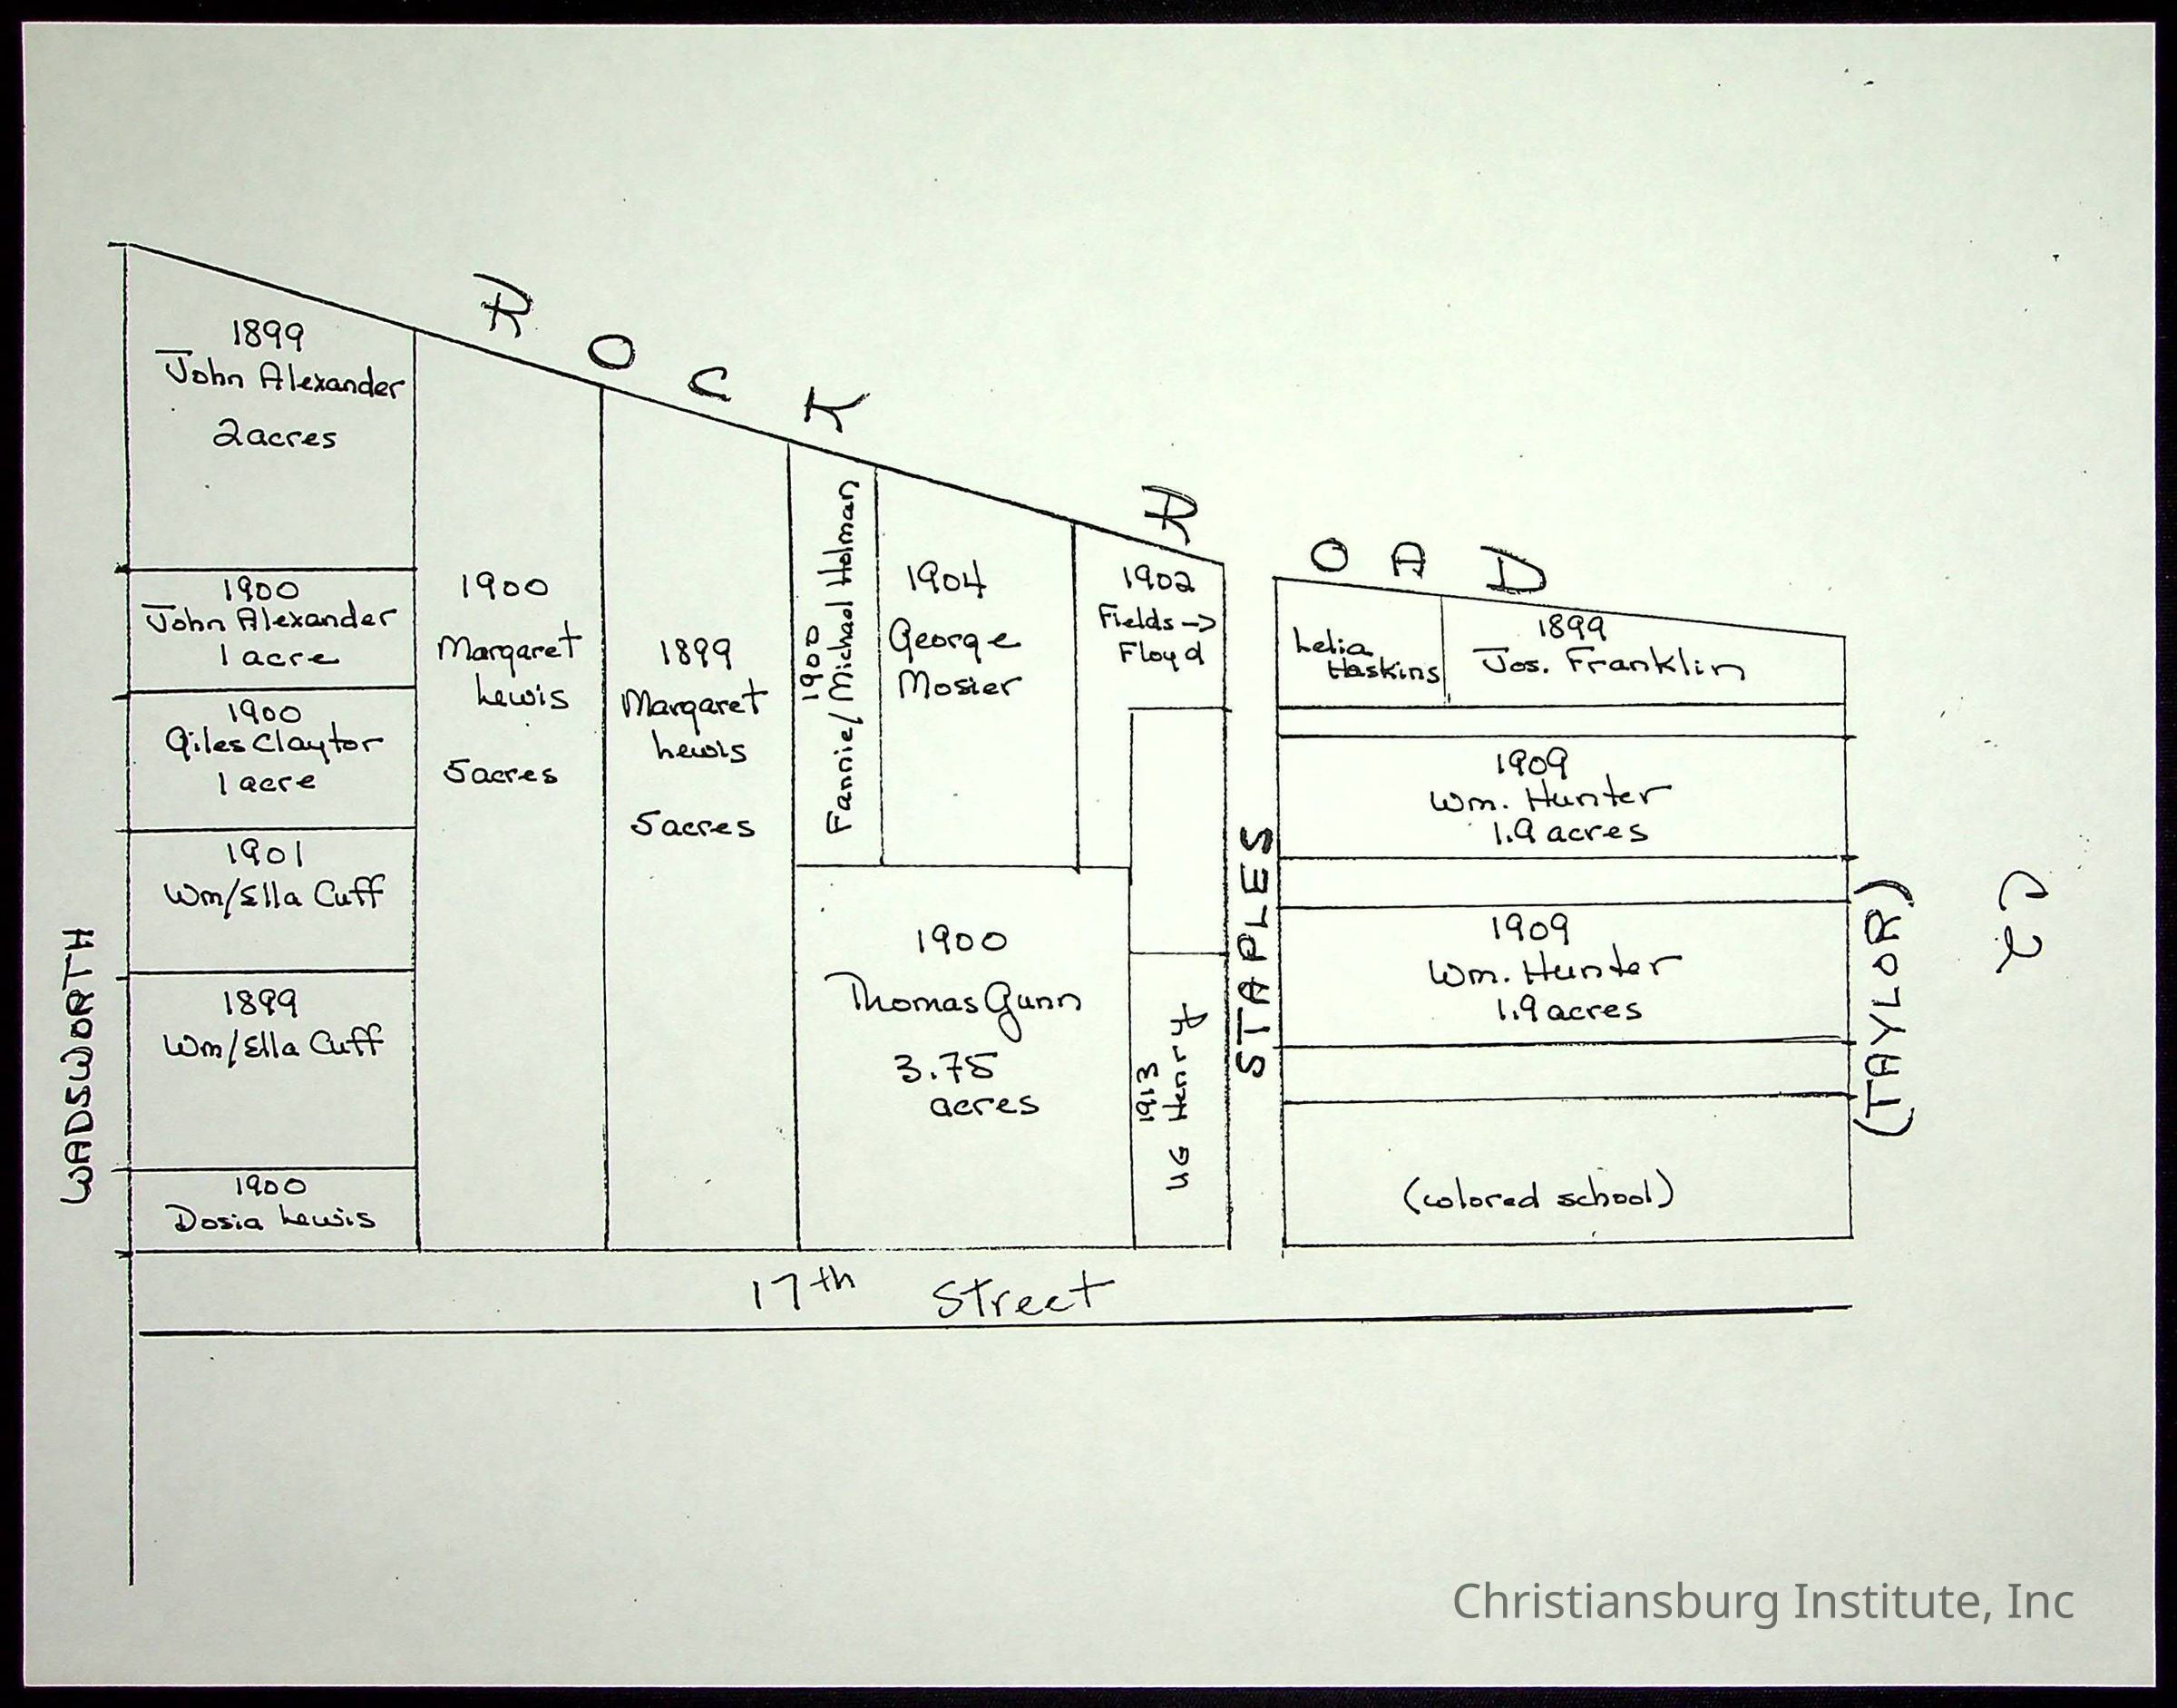 ROCK ROAD
1899
John Alexander
2 acres
1900
John Alexander
1 acre
1900
Giles Claytor
1 acre
1901
Wm/Ella Cuff
1899
Wm/Ella Cuff
1900
Dosia Lewis
WADSWORTH
1900
Margaret
Lewis
5 acres
1899
Margaret
Lewis
5 acres
1900
Fannie/Michael Holman
1904
George
Mosier
1902
Fields ->
Floyd
1900
Thomas Gunn
3.75
acres
1913
UG Henry
STAPLES
Lelia
Haskins
1899
Jos. Franklin
1909
Wm. Hunter
1.9 acres
1909
Wm. Hunter
1.9 acres
(colored school)
(TAYLOR)
C2
17th Street
Christiansburg Institute, Inc